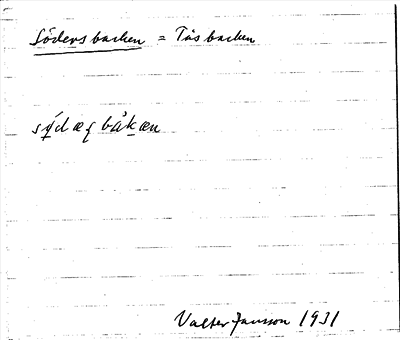 Södersbacken = Tåsbacken
sý̠dæʂbåk̠æn
Valter Jansson 1931